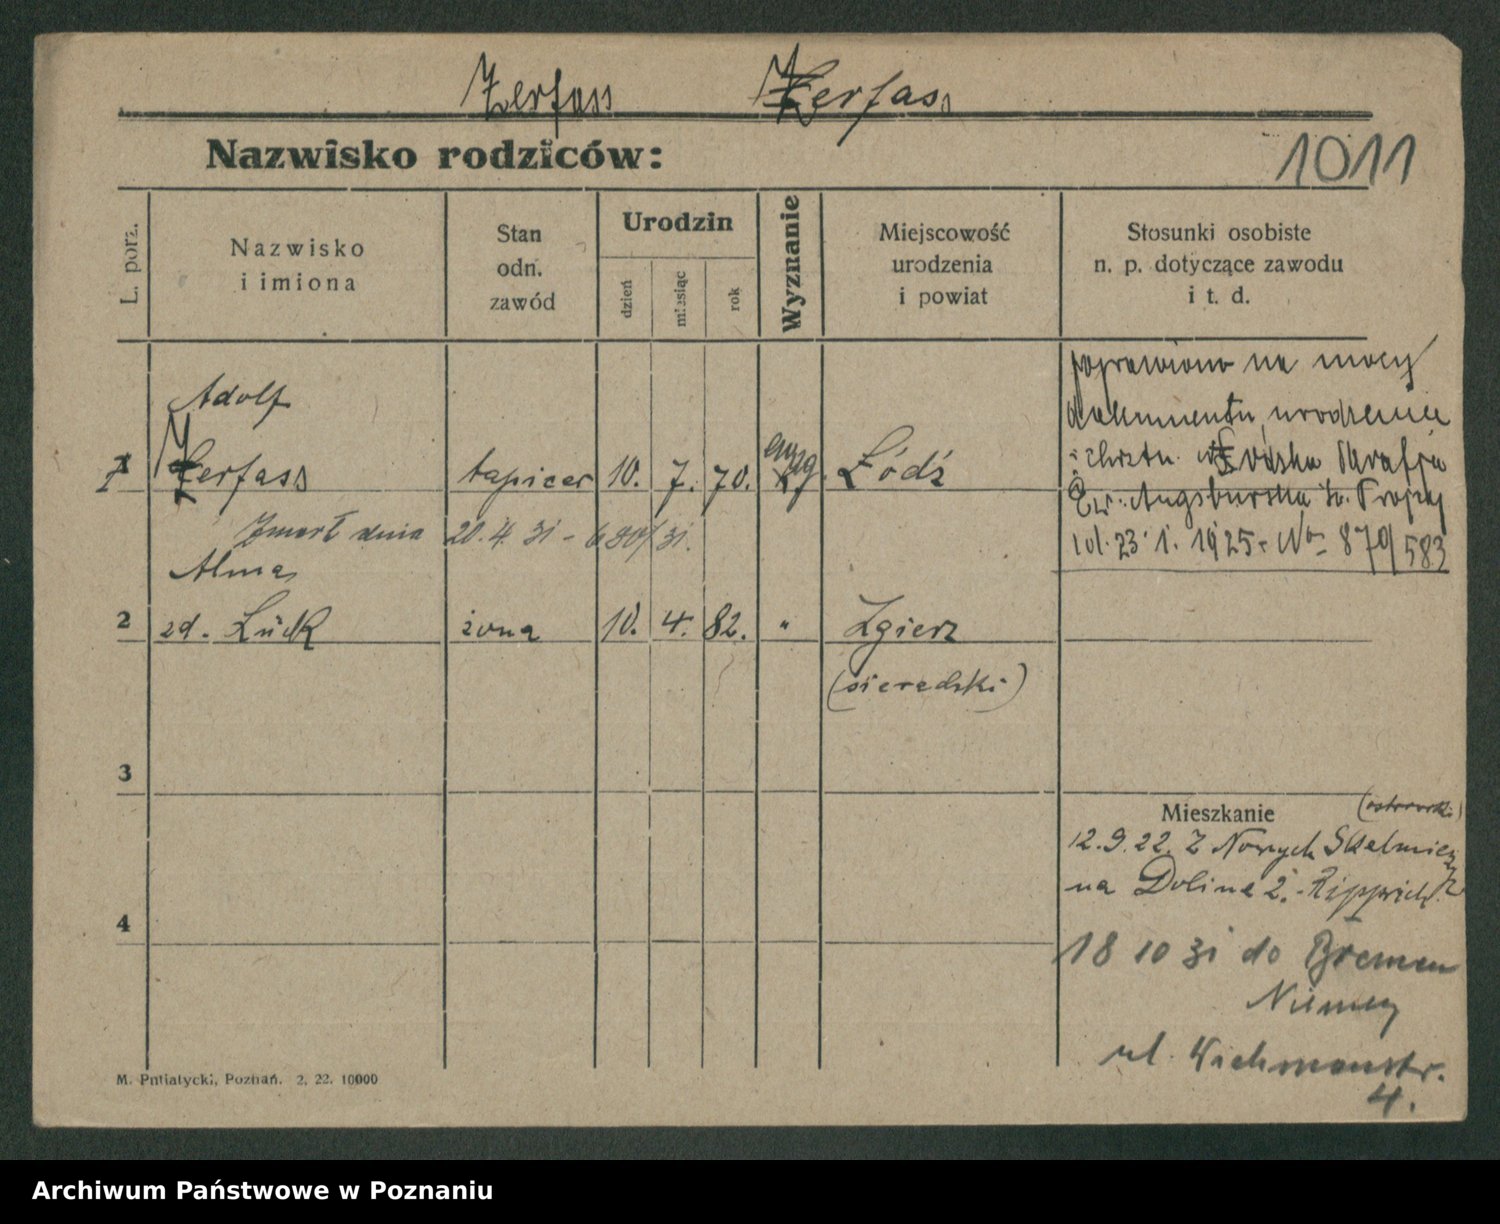 Zerfass Zerfass
Nazwisko rodziców:
1011
L. porz.
Nazwisko
i imiona
Stan
odn.
zawód
Urodzin
dzień
miesiąc
rok
Wyznanie
Miejscowość
urodzenia
i powiat
Stosunki osobiste
n. p. dotyczące zawodu
i t. d.
poprawiono na mocy
dokumentu urodzenia
i chrztu Łódzka Parafja
Ew. Augsburska Trojcy
23.1.1925 - No 870/583
Adolf
1 Zerfass tapicer 10. 7. 70. ewg. Łódź
Zmarł dnia 20.4.31 - 680/31.
Alma
2 zd. Lück żona 10. 4. 82. " Zgierz
(sieradzki)
3
4
Mieszkanie (ostrowski)
12.9.22. Z Nowych Skalmierzyc
na Dolina 2.
18 10 31 do Bremen
Niemcy
ul. Wachmanstr.
4.
M. Putiatycki, Poznań. 2. 22. 10000
Archiwum Państwowe w Poznaniu